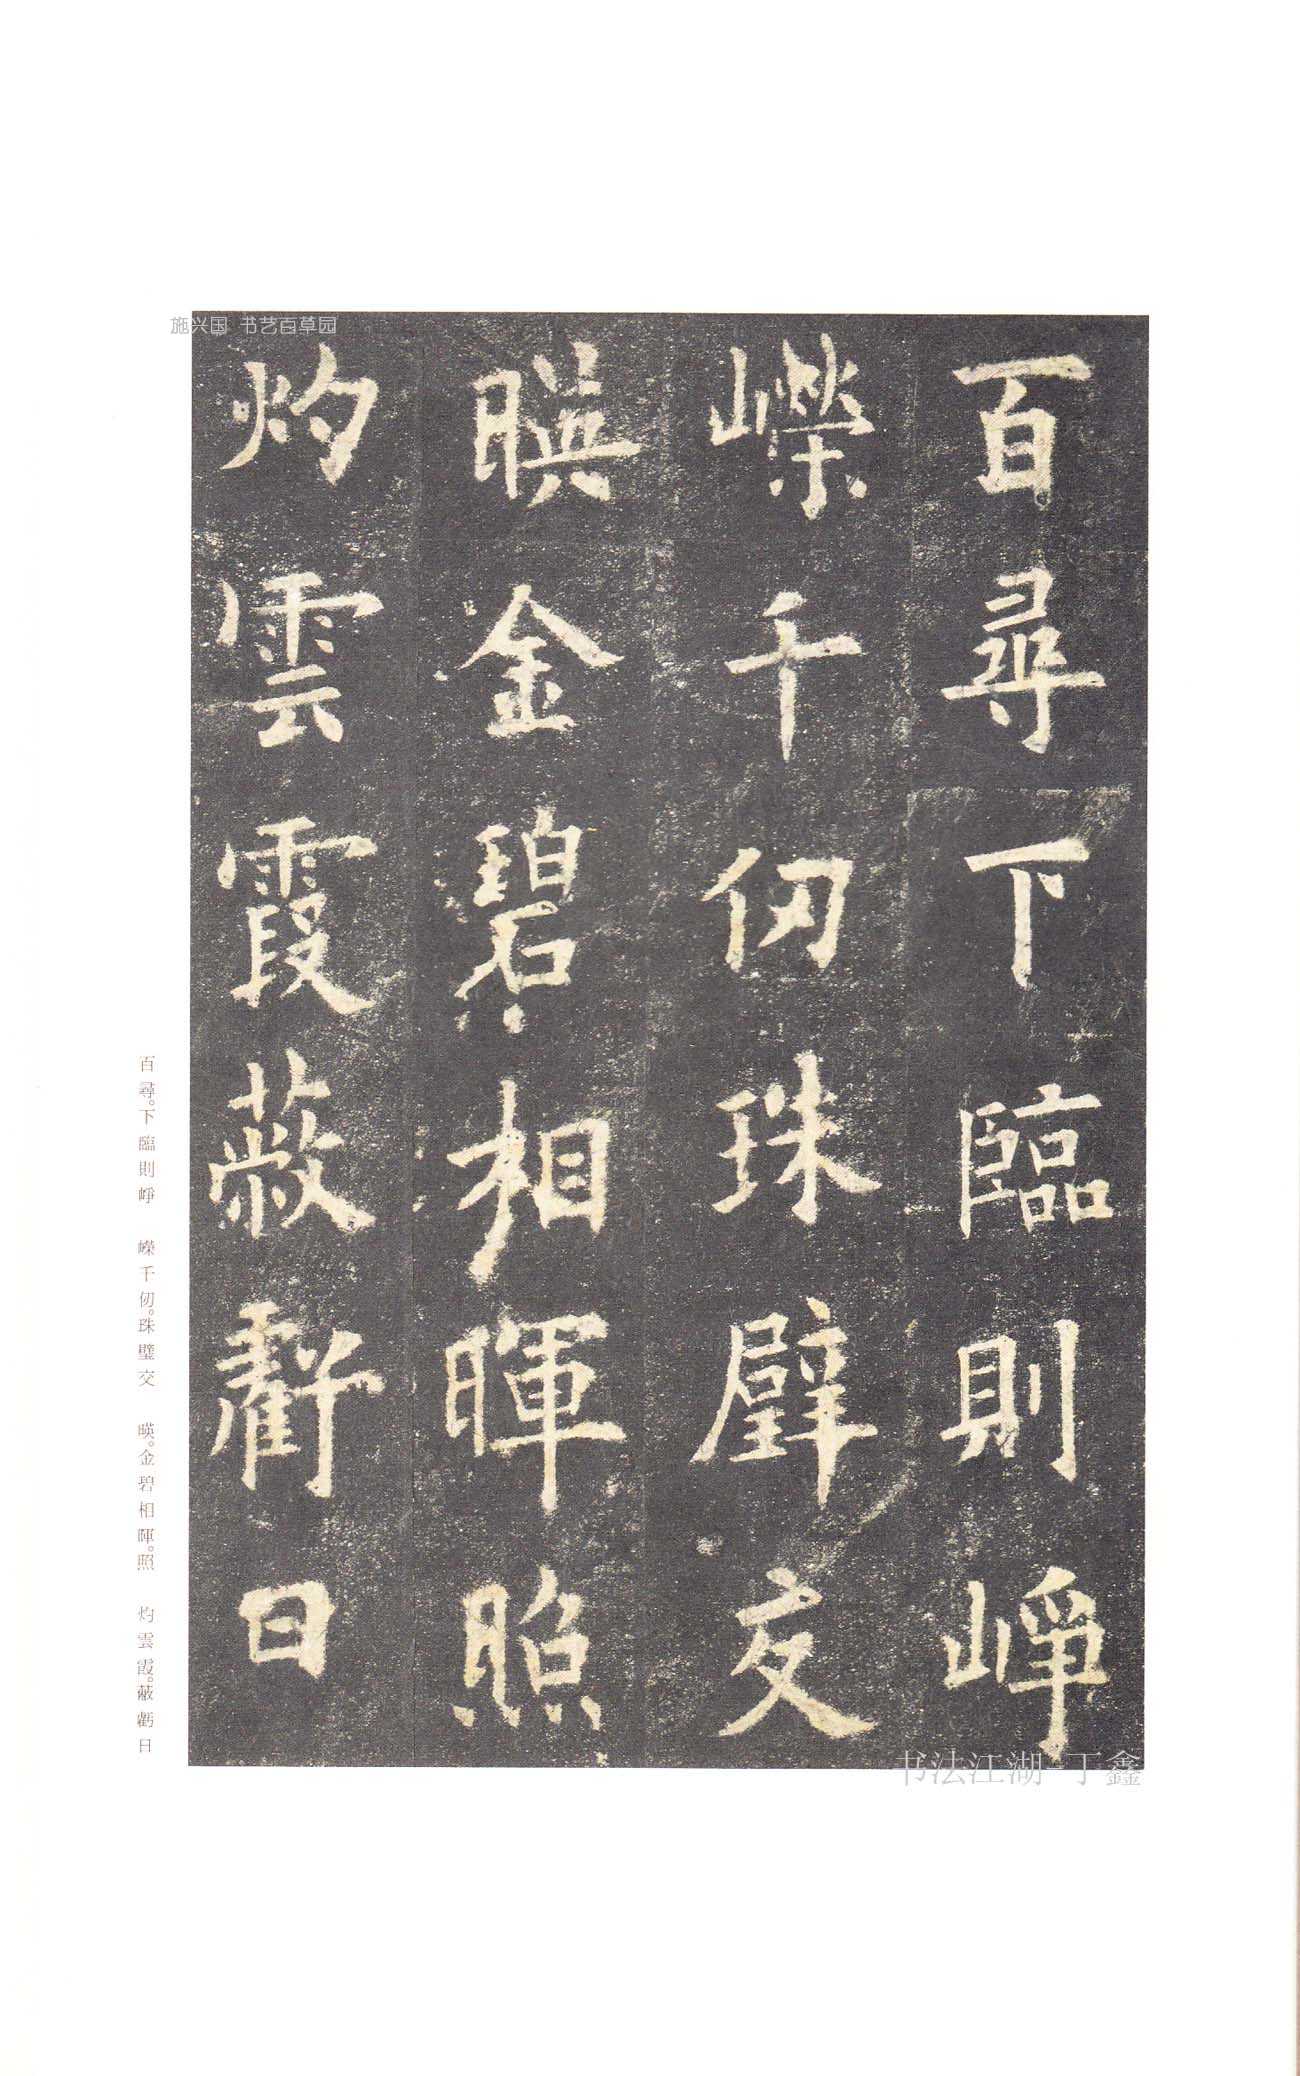 施兴国 书艺百草园
百尋下臨則崢
嶸千仞珠璧交
暎金碧相暉照
灼雲霞蔽虧日
百尋。下臨則崢 嶸千仞。珠璧交 暎。金碧相暉。照 灼雲霞。蔽虧日
书法江湖-丁鑫